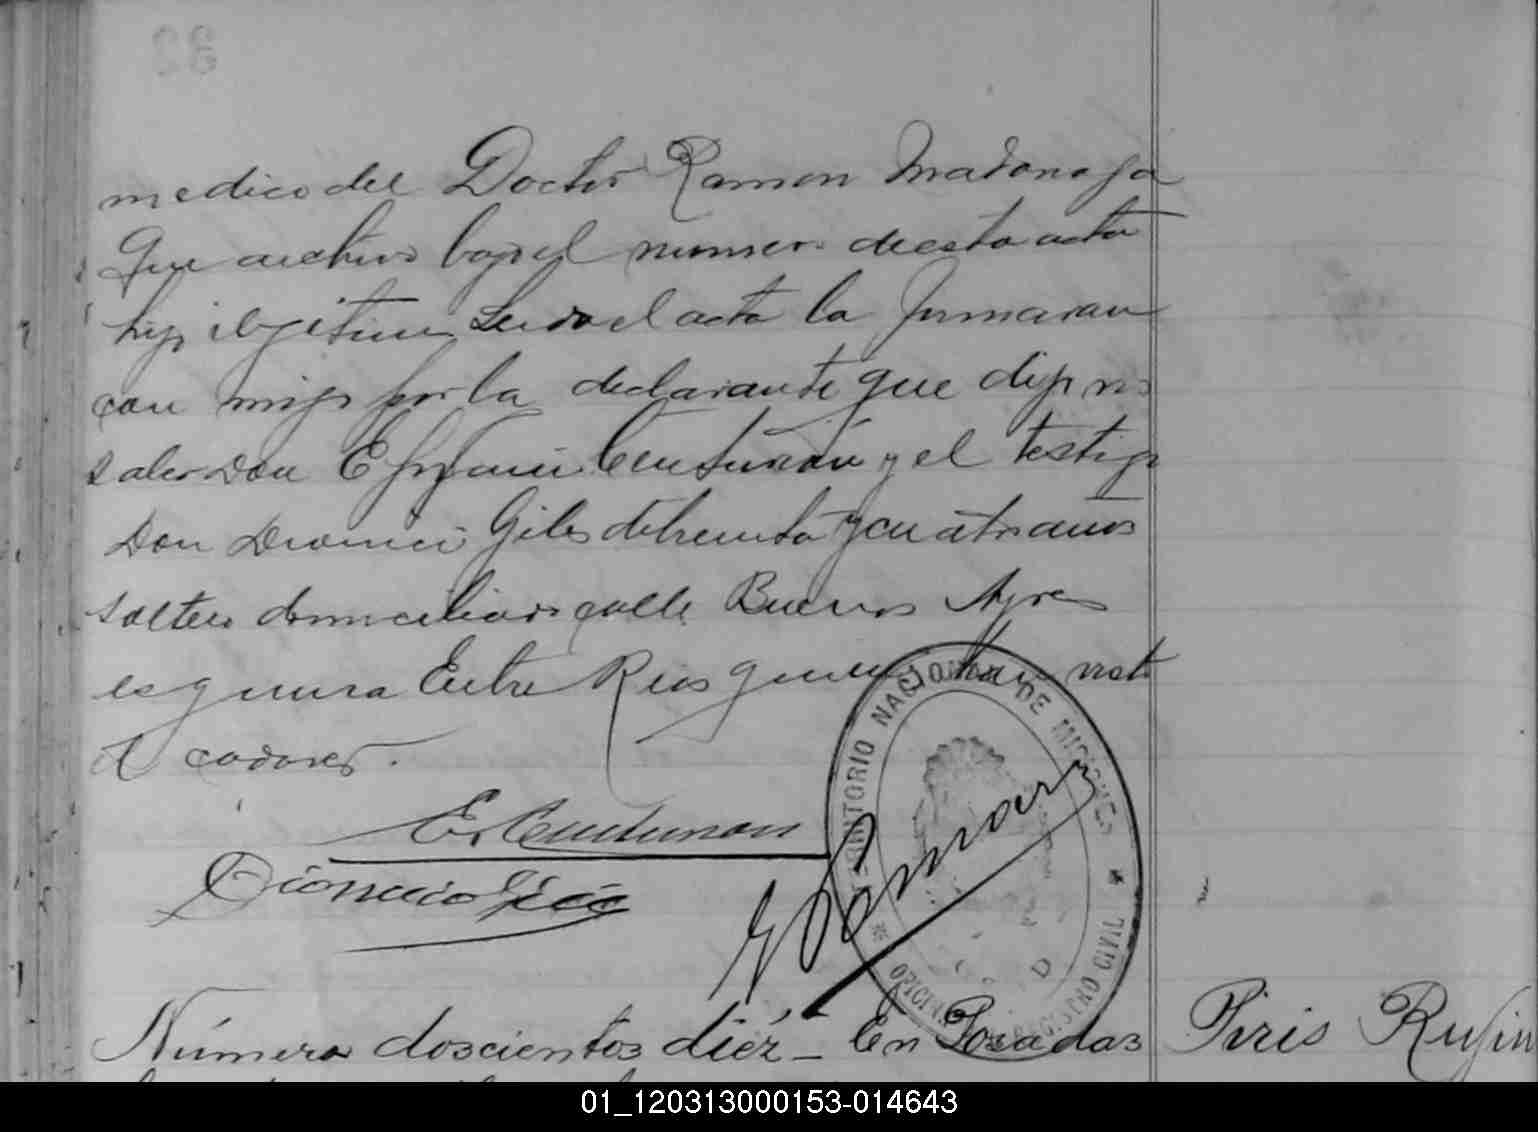 32
medico del Doctor Ramon Madonaga
que archivo bajo el numero de esta acta
hijo ilegitimo Leida el acta la firmaran
con migo por la declarante que dijo no
saber Don Efigenio Centurión y el testigo
Don Dionicio Giles de treinta y cuatro años
soltero domiciliado calle Buenos Ayres
esquina Entre Rios quienes han visto
el cadaver.
E. Centurion
Dionicio Giles
TERRITORIO NACIONAL DE MISIONES
OFICINA REGISTRO CIVIL
Número doscientos diéz - En Posadas
Piris Rufin
01_120313000153-014643